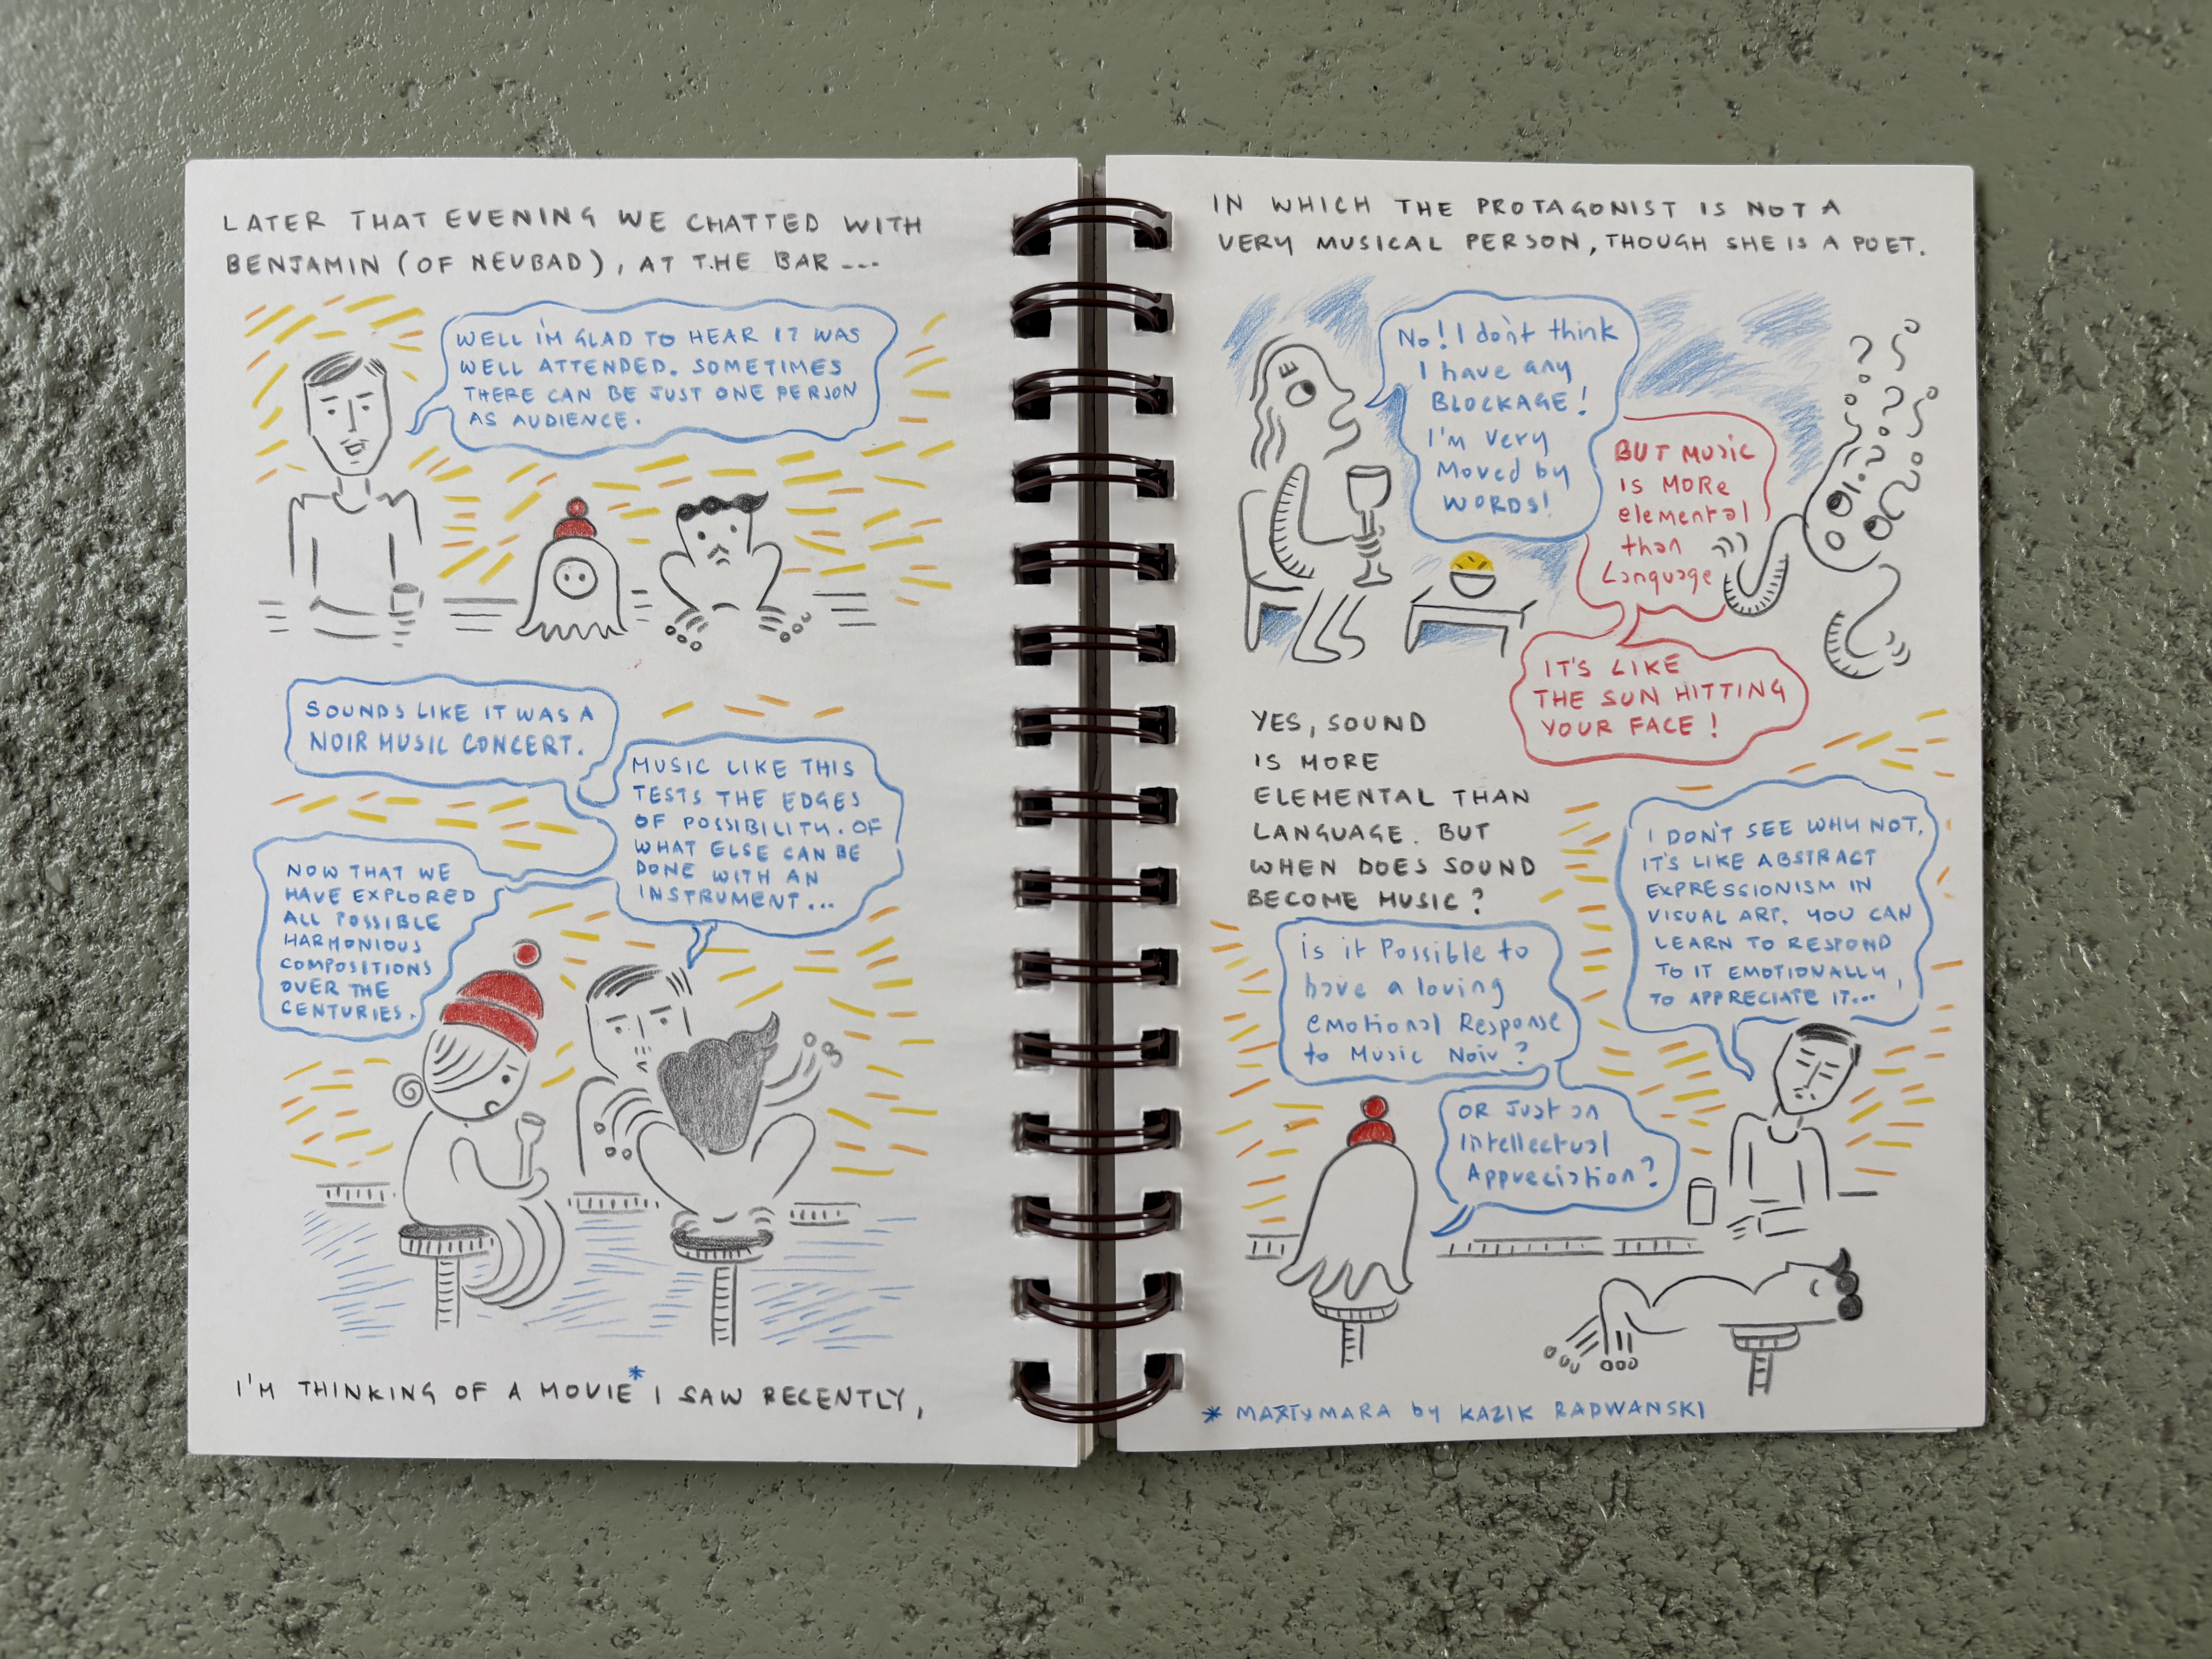 LATER THAT EVENING WE CHATTED WITH
BENJAMIN (OF NEUBAD), AT THE BAR ---
WELL I'M GLAD TO HEAR IT WAS
WELL ATTENDED. SOMETIMES
THERE CAN BE JUST ONE PERSON
AS AUDIENCE.
SOUNDS LIKE IT WAS A
NOIR MUSIC CONCERT.
MUSIC LIKE THIS
TESTS THE EDGES
OF POSSIBILITY. OF
WHAT ELSE CAN BE
DONE WITH AN
INSTRUMENT...
NOW THAT WE
HAVE EXPLORED
ALL POSSIBLE
HARMONIOUS
COMPOSITIONS
OVER THE
CENTURIES.
I'M THINKING OF A MOVIE* I SAW RECENTLY,
IN WHICH THE PROTAGONIST IS NOT A
VERY MUSICAL PERSON, THOUGH SHE IS A POET.
No! I don't think
I have any
BLOCKAGE!
I'm very
Moved by
WORDS!
BUT Music
is MORe
elemental
than
Language
IT'S LIKE
THE SUN HITTING
YOUR FACE!
YES, SOUND
IS MORE
ELEMENTAL THAN
LANGUAGE. BUT
WHEN DOES SOUND
BECOME MUSIC?
I DON'T SEE WHY NOT.
IT'S LIKE ABSTRACT
EXPRESSIONISM IN
VISUAL ART. YOU CAN
LEARN TO RESPOND
TO IT EMOTIONALLY,
TO APPRECIATE IT...
is it Possible to
have a loving
emotional Response
to Music Noir?
OR Just an
Intellectual
Appreciation?
* MATT & MARA by KAZIK RADWANSKI